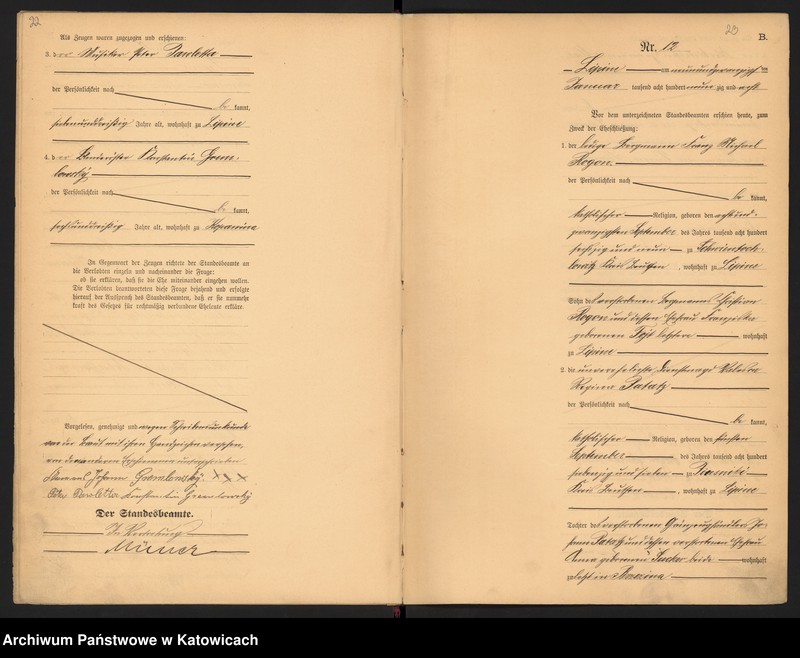 22
Als Zeugen waren zugezogen und erschienen:
3. der Musiker Peter Pawletta
der Persönlichkeit nach
be kannt,
siebenunddreißig Jahre alt, wohnhaft zu Lipine
4. der Konstantin Grem-
lowsky
der Persönlichkeit nach
be kannt,
sechsunddreißig Jahre alt, wohnhaft zu Kopanina
In Gegenwart der Zeugen richtete der Standesbeamte an
die Verlobten einzeln und nacheinander die Frage:
ob sie erklären, daß sie die Ehe miteinander eingehen wollen.
Die Verlobten beantworteten diese Frage bejahend und erfolgte
hierauf der Ausspruch des Standesbeamten, daß er sie nunmehr
kraft des Gesetzes für rechtmäßig verbundene Eheleute erkläre.
Vorgelesen, genehmigt und wegen Schreibensunkunde
von der Braut mit ihren Handzeichen versehen,
von den anderen unterschrieben
Johann Gremlowsky. XXX
Peter Pawletta Konstantin Gremlowsky
Der Standesbeamte.
In Vertretung
23
B.
Nr. 12
Lipine am neunundzwanzigsten
Januar tausend acht hundert neun zig und acht
Vor dem unterzeichneten Standesbeamten erschien heute, zum
Zweck der Eheschließung:
1. der ledige Bergmann Franz Michael
Rogon
der Persönlichkeit nach
be kannt,
katholischer Religion, geboren den achtund-
zwanzigsten September des Jahres tausend acht hundert
sechszig und neun zu Schwientoch-
lowitz Kreis Beuthen, wohnhaft zu Lipine
Sohn des verstorbenen Bergmanns
Rogon und dessen Ehefrau Franziska
geborenen letztere wohnhaft
zu Lipine
2. die unverehelichte Dienstmagd
Regina
der Persönlichkeit nach
be kannt,
katholischer Religion, geboren den fünften
September des Jahres tausend acht hundert
siebenzig und sieben zu
Kreis Beuthen, wohnhaft zu Lipine
Tochter des verstorbenen Jo-
hann und dessen verstorbenen Ehefrau
Anna geborenen beide wohnhaft
zuletzt in
Archiwum Państwowe w Katowicach